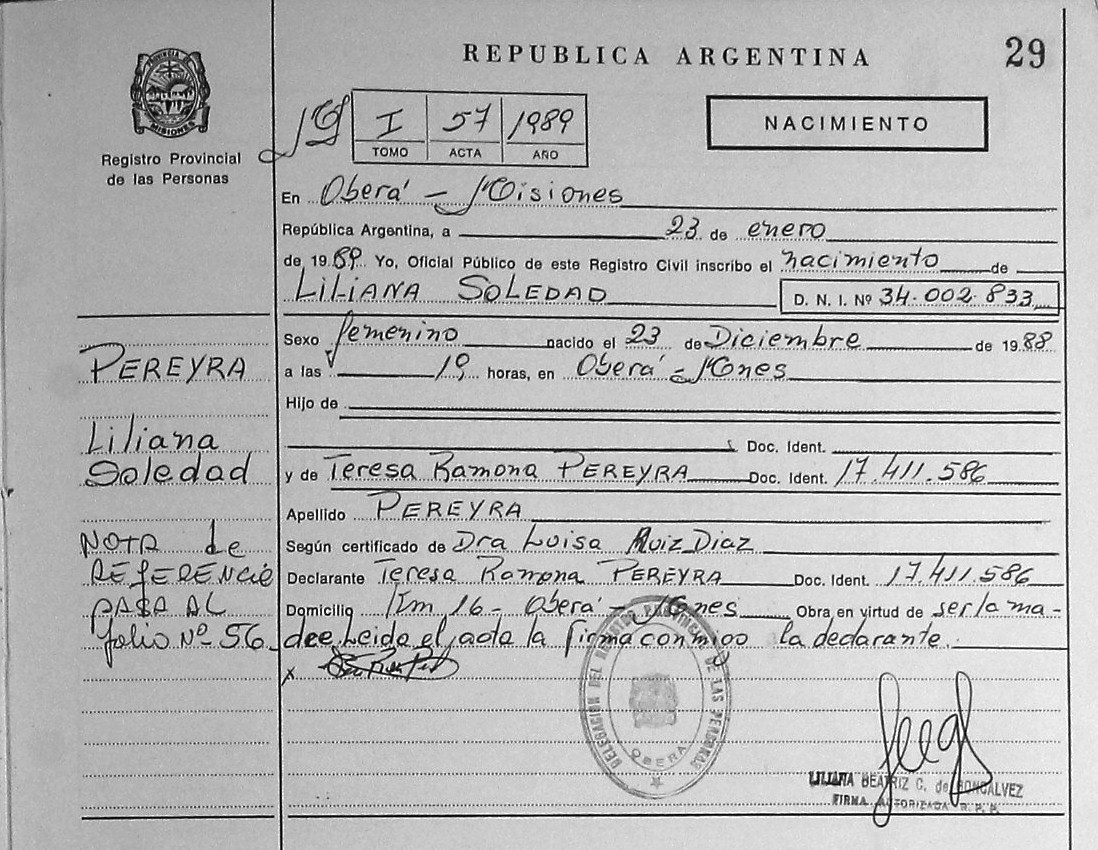 REPUBLICA ARGENTINA
29
PROVINCIA DE
MISIONES
Registro Provincial
de las Personas
I 57 1989
TOMO ACTA AÑO
NACIMIENTO
En Oberá - Misiones
República Argentina, a 23 de enero
de 1989 Yo, Oficial Público de este Registro Civil inscribo el nacimiento de
LILIANA SOLEDAD D. N. I. Nº 34.002.833
Sexo femenino nacido el 23 de Diciembre de 1988
a las 19 horas, en Oberá - Mones
Hijo de
Doc. Ident.
y de Teresa Ramona PEREYRA Doc. Ident. 17.411.586
Apellido PEREYRA
Según certificado de Dra Luisa Ruiz Diaz
Declarante Teresa Ramona PEREYRA Doc. Ident. 17.411.586
Domicilio Km 16 - Oberá - Mones Obra en virtud de ser la ma-
dre Leida el acta la firma conmigo la declarante.
x
PEREYRA
Liliana
Soledad
NOTA de
REFERENCIA
PASA AL
folio Nº 56
DELEGACION DEL REGISTRO PROVINCIAL DE LAS PERSONAS
OBERA
LILIANA BEATRIZ C. de GONCALVEZ
FIRMA AUTORIZADA R. P. P.